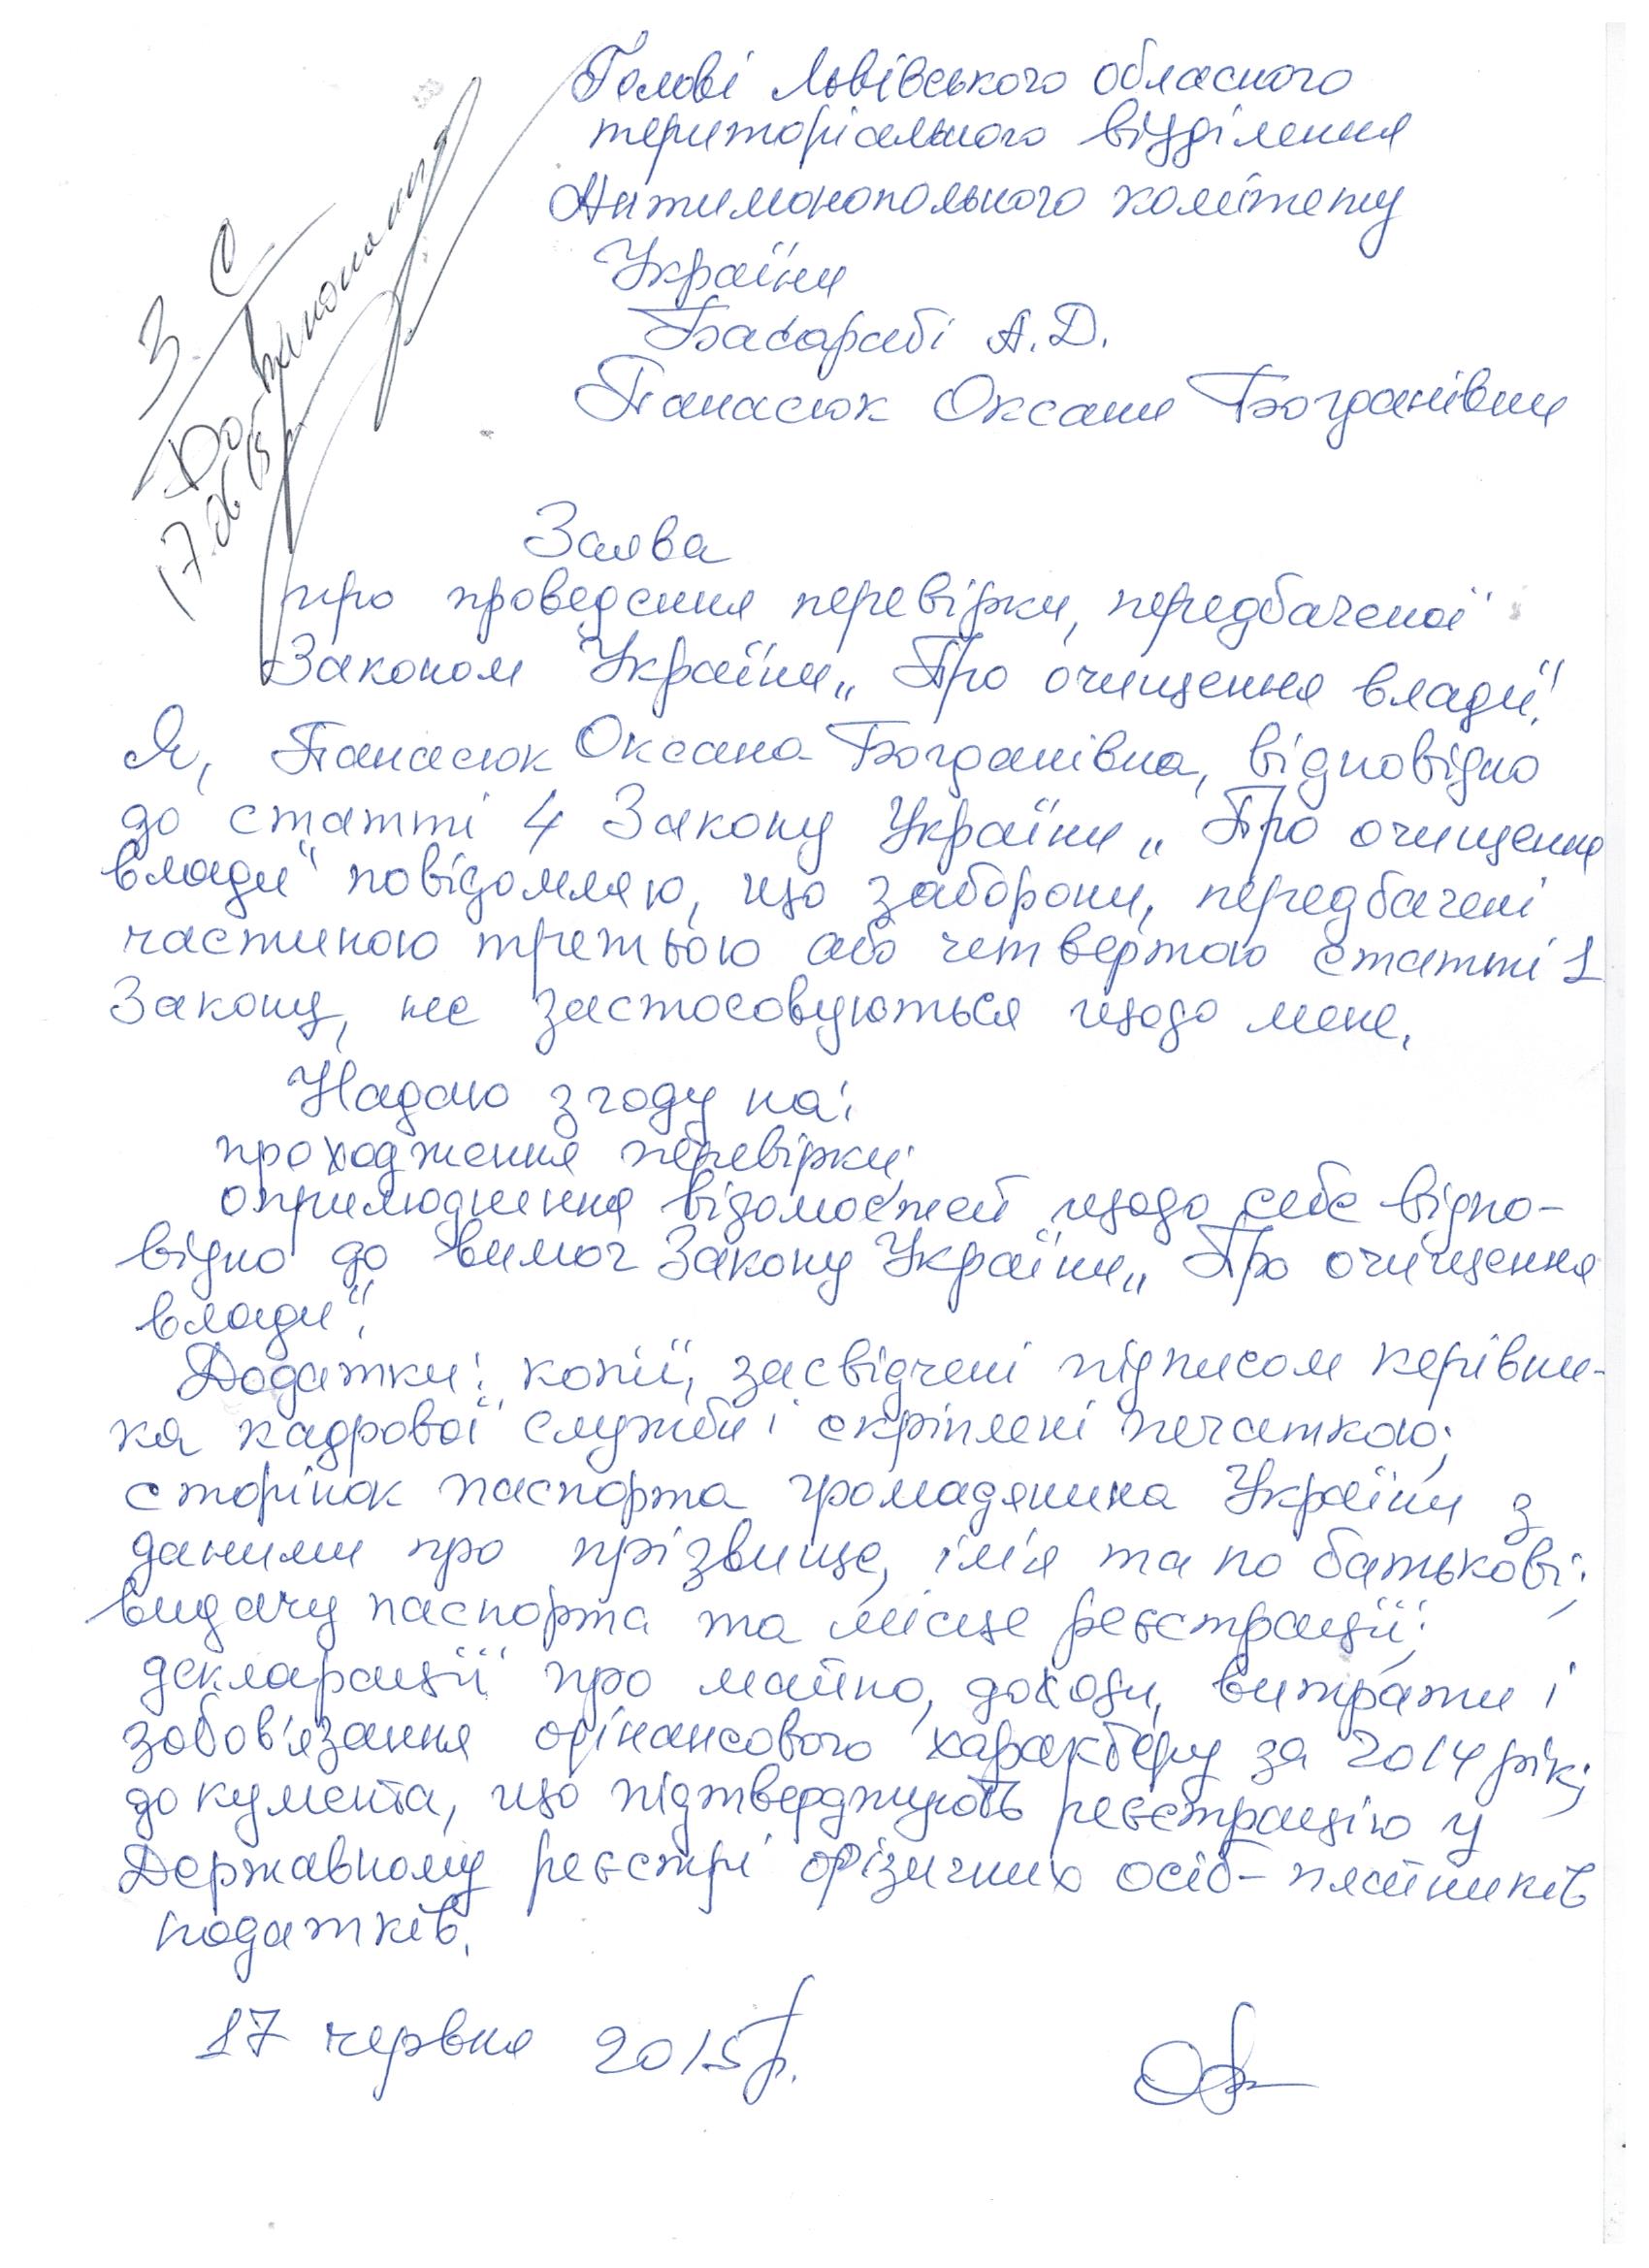 Голові Львівського обласного
територіального відділення
Антимонопольного комітету
України
Басарабі А.Д.
Панасюк Оксани Богданівни
З. С
До виконання
17.06.15
Заява
про проведення перевірки, передбаченої
Законом України „Про очищення влади".
Я, Панасюк Оксана Богданівна, відповідно
до статті 4 Закону України „Про очищення
влади" повідомляю, що заборони, передбачені
частиною третьою або четвертою статті 1
Закону, не застосовуються щодо мене.
Надаю згоду на:
проходження перевірки;
оприлюднення відомостей щодо себе відпо-
відно до вимог Закону України „Про очищення
влади".
Додатки: копії, засвідчені підписом керівни-
ка кадрової служби і скріплені печаткою;
сторінок паспорта громадянина України з
даними про прізвище, ім'я та по батькові;
видачу паспорта та місце реєстрації;
декларації про майно, доходи, витрати і
зобов'язання фінансового характеру за 2014 рік;
документа, що підтверджують реєстрацію у
Державному реєстрі фізичних осіб-платників
податків.
17 червня 2015 р.